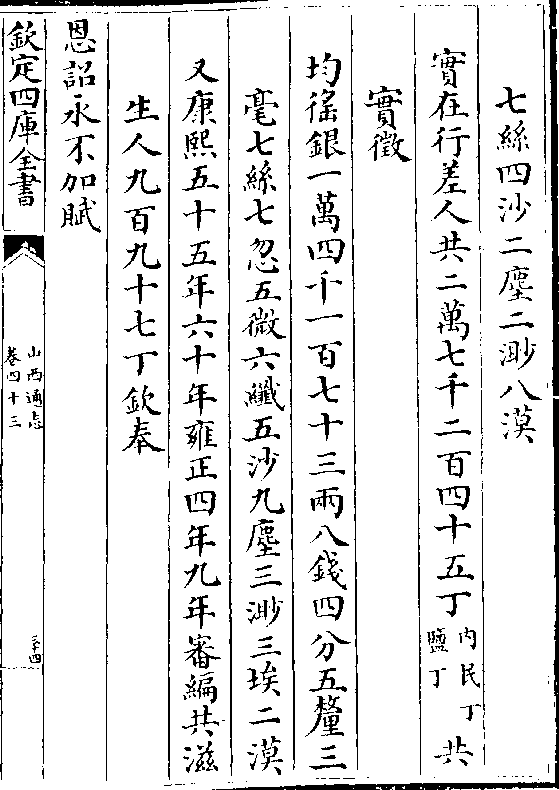 七絲四沙二塵二渺八漠
實在行差人共二萬七千二百四十五丁內民丁鹽丁共
實徵
均徭銀一萬四千一百七十三兩八錢四分五釐三
毫七絲七忽五微六纖五沙九塵三渺三埃二漠
又康熙五十五年六十年雍正四年九年審編共滋
生人九百九十七丁欽奉
恩詔永不加賦
欽定四庫全書
山西通志
卷四十三
三十四